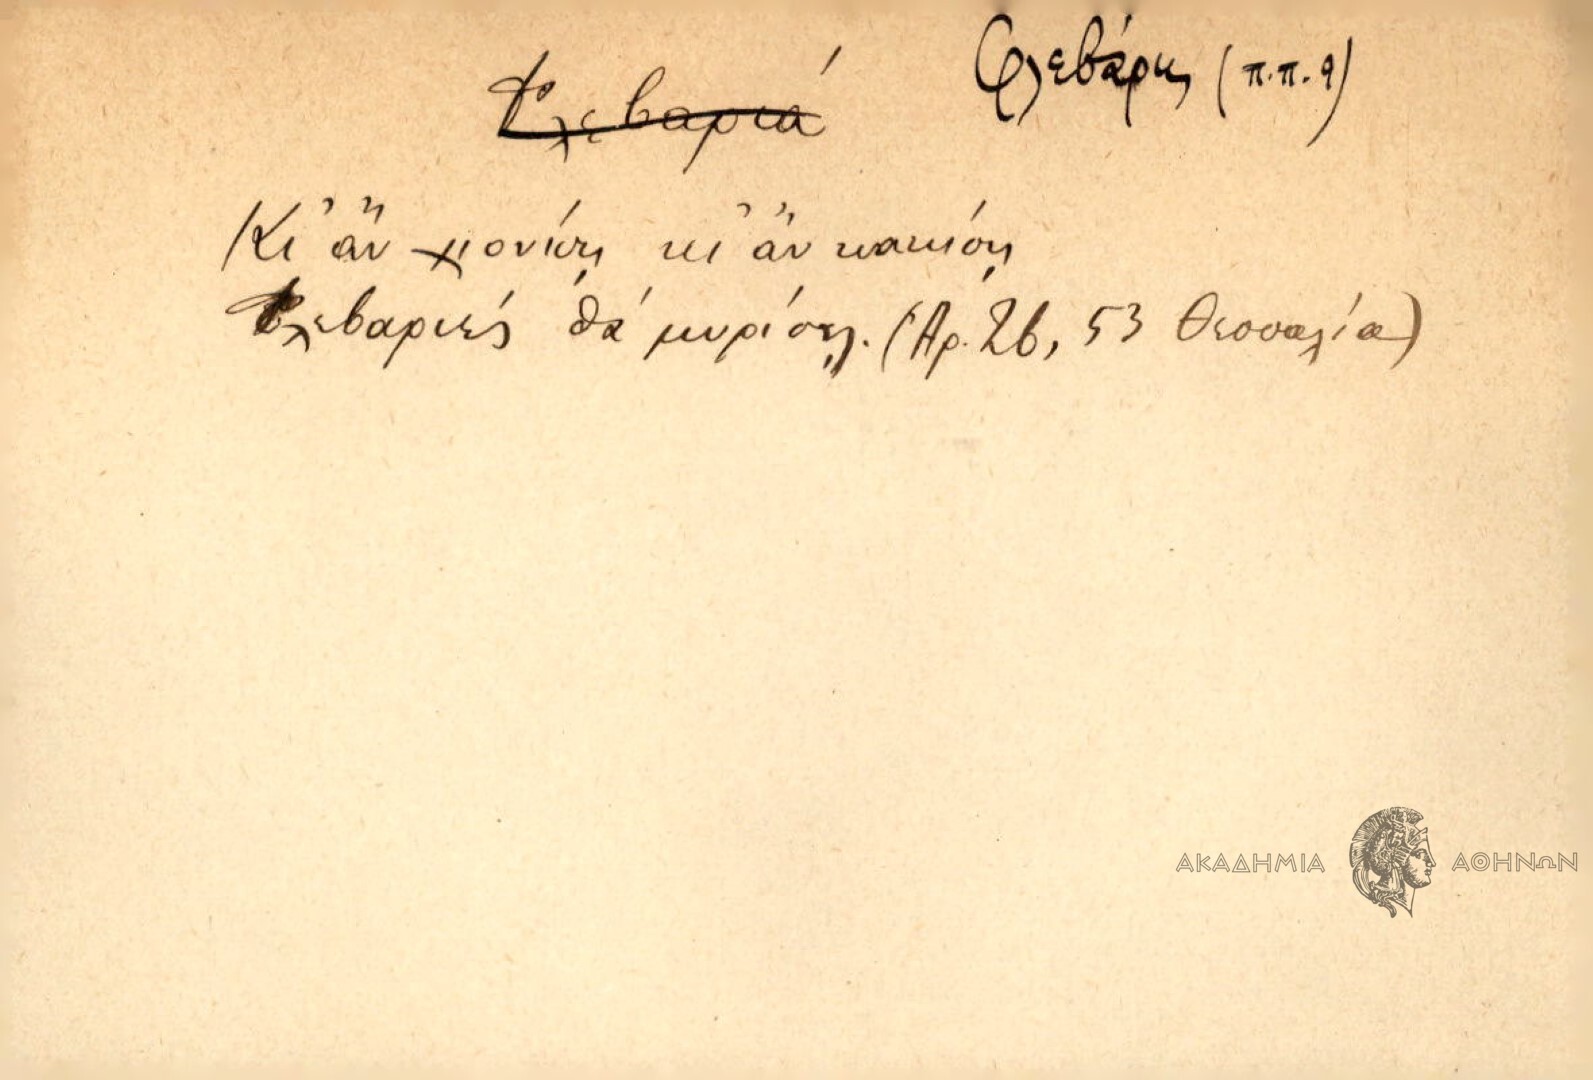 Φλεβαριά
Φλεβάρης (π.π. 9)
Κι' ἂν χιονίσῃ κι' ἂν κακιώσῃ
Φλεβαριές θά μυρίσῃ. (Ἀρ. 26, 53 Θεσσαλία)
ΑΚΑΔΗΜΙΑ ΑΘΗΝΩΝ